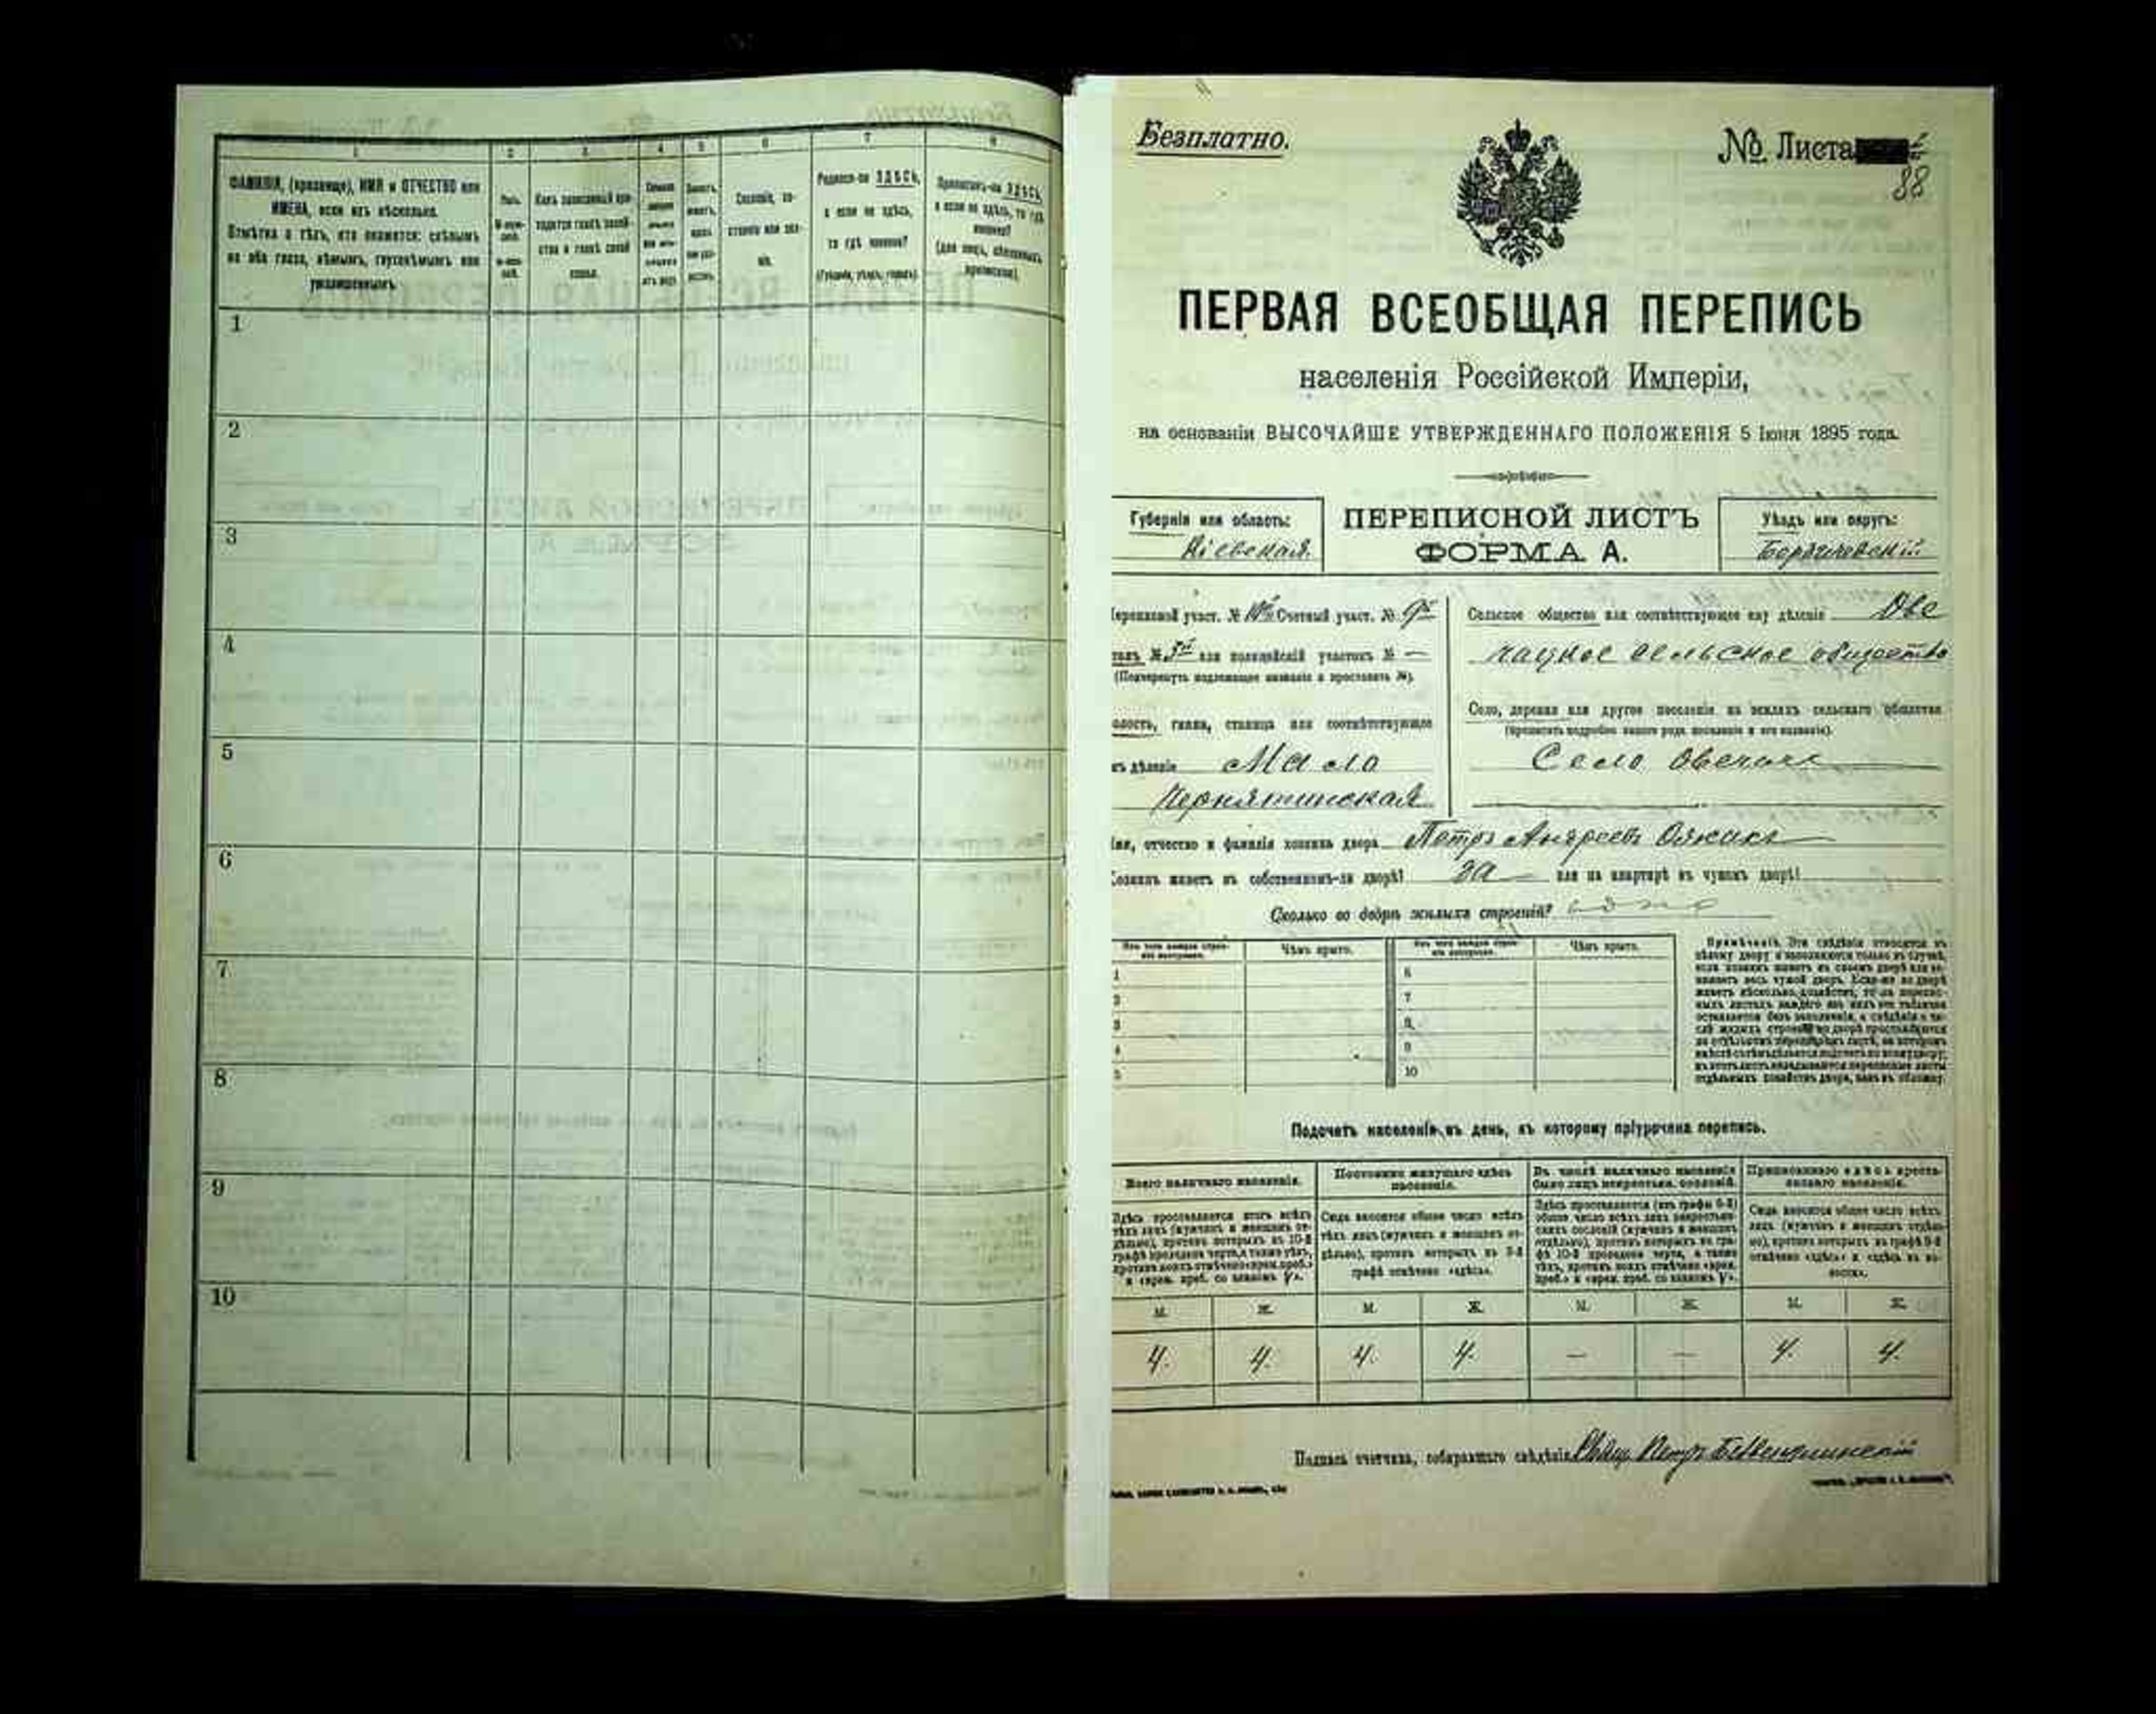 1 2 3 4 5 6 7 8
ФАМИЛІЯ, (прозвище), ИМЯ и ОТЧЕСТВО или
ИМЕНА, если ихъ нѣсколько.
Отмѣтка о тѣхъ, кто окажется: слѣпымъ
на оба глаза, нѣмымъ, глухонѣмымъ или
умалишеннымъ.
Полъ.
Какъ записанный при-
ходится главѣ хозяй-
ства и главѣ своей
семьи.
Сословіе, со-
стояніе или зва-
ніе.
Родился-ли ЗДѢСЬ,
а если не здѣсь,
то гдѣ именно?
(Губернія, уѣздъ, городъ).
Приписанъ-ли ЗДѢСЬ,
а если не здѣсь, то гдѣ
именно?
(для лицъ, обязанныхъ
припиской).
1
2
3
4
5
6
7
8
9
10
Безплатно.
№ Листа
88
ПЕРВАЯ ВСЕОБЩАЯ ПЕРЕПИСЬ
населенія Россійской Имперіи,
на основаніи ВЫСОЧАЙШЕ УТВЕРЖДЕННАГО ПОЛОЖЕНІЯ 5 Іюня 1895 года.
Губернія или область:
Кіевская.
ПЕРЕПИСНОЙ ЛИСТЪ
ФОРМА А.
Уѣздъ или округъ:
Бердичевскій
участ. № Счетный участ. № 9й
№ 5й или полицейскій участокъ № —
(Подчеркнуть подлежащее названіе и проставить №).
гмина, станица или соотвѣтствующее
дѣленіе Мало
Чернятинская
Сельское общество или соотвѣтствующее ему дѣленіе Ове
чацкое сельское общество
Село, деревня или другое поселеніе на земляхъ сельскаго общества
(прописать подробно какого рода поселеніе и его названіе).
Село Овечаче
отчество и фамилія хозяина двора Петръ Андреевъ
живетъ въ собственномъ-ли дворѣ? да или на квартирѣ въ чужомъ дворѣ?
Сколько во дворѣ жилыхъ строеній? одно
Изъ чего каждое строе-
ніе построено.
Чѣмъ крыто.
Изъ чего каждое строе-
ніе построено.
Чѣмъ крыто.
1 6
2 7
3 8
4 9
5 10
Примѣчаніе. Эти свѣдѣнія относятся къ
цѣлому двору и заполняются только въ случаѣ,
если хозяинъ живетъ въ своемъ дворѣ или за-
нимаетъ весь чужой дворъ. Если-же во дворѣ
живетъ нѣсколько хозяйствъ, то на перепис-
ныхъ листахъ каждаго изъ нихъ эта таблица
оставляется безъ заполненія, а свѣдѣнія о чи-
слѣ жилыхъ строеній во дворѣ проставляются
на отдѣльномъ переписномъ листѣ, на которомъ
Подсчетъ населенія въ день, къ которому пріурочена перепись.
Всего наличнаго населенія.
Постоянно живущаго здѣсь
населенія.
Въ числѣ наличнаго населенія
было лицъ некрестьян. сословій.
Приписаннаго здѣсь кресть-
янскаго населенія.
Здѣсь проставляется итогъ всѣхъ
тѣхъ лицъ (мужчинъ и женщинъ от-
дѣльно), противъ которыхъ въ 10-й
графѣ проведена черта, а также тѣхъ,
противъ коихъ отмѣчено «врем. преб.»
и «врем. преб. со знакомъ V».
Сюда вносится общее число всѣхъ
тѣхъ лицъ (мужчинъ и женщинъ от-
дѣльно), противъ которыхъ въ 9-й
графѣ отмѣчено «здѣсь».
Здѣсь проставляется (изъ графы 6-й)
общее число всѣхъ лицъ некрестьян-
скихъ сословій (мужчинъ и женщинъ
отдѣльно), противъ которыхъ въ гра-
фѣ 10-й проведена черта, а также
тѣхъ, противъ коихъ отмѣчено «врем.
преб.» и «врем. преб. со знакомъ V».
Сюда вносится общее число всѣхъ
лицъ (мужчинъ и женщинъ отдѣль-
но), противъ которыхъ въ графѣ 8-й
отмѣчено «здѣсь» и «здѣсь въ во-
лости».
М. Ж. М. Ж. М. Ж. М. Ж.
4. 4. 4. 4. — — 4. 4.
Подпись счетчика, собиравшаго свѣдѣнія Петръ